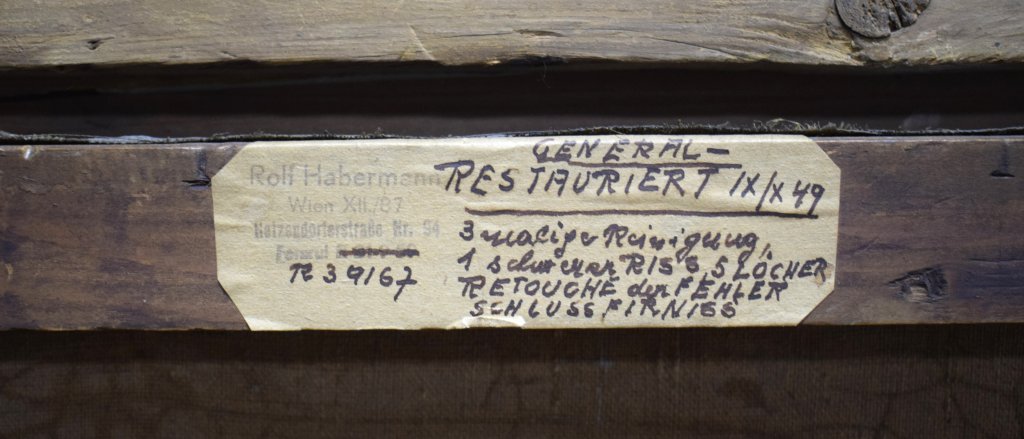 Rolf Habermann
Wien XII./87
Hetzendorferstraße Nr. 94
Fernruf
R 39167
GENERAL-
RESTAURIERT IX/X 49
3 maliger Reinigung,
1 schwerer RISS 5 LÖCHER
RETOUCHE der FEHLER
SCHLUSSFIRNISS